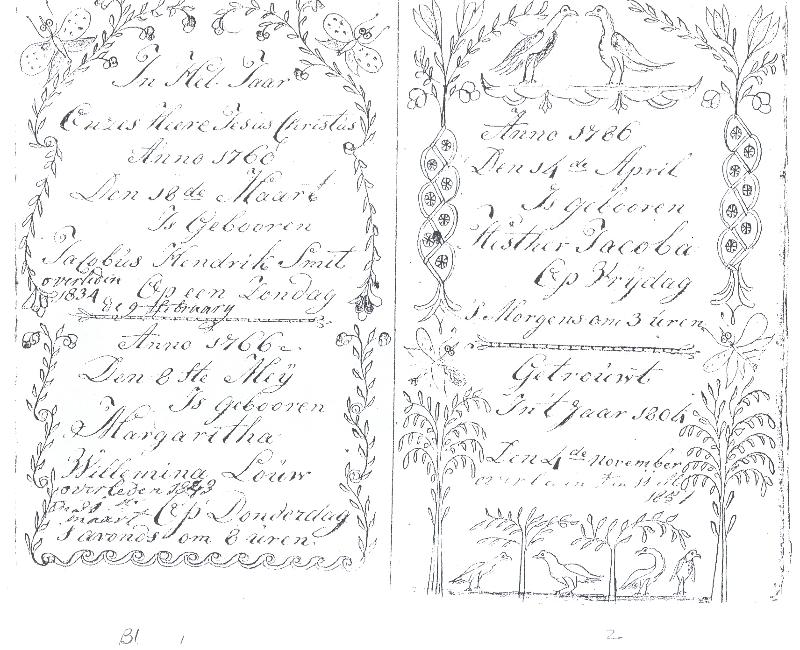 In Het Jaar
Onzes Heere Jesus Christus
Anno 1760
Den 18de Maart
Is Gebooren
Jacobus Hendrik Smit
overleden
1834
Op een Zondag
de 9 February
Anno 1766
Den 8ste Meÿ
Is gebooren
Margaritha
Willemina Louw
overleden 1843
maart
Op Donderdag
s avonds om 8 uren
Anno 1786
Den 14de April
Is gebooren
Hesther Jacoba
Op Vrÿdag
'S Morgens om 3 uren
Getrouwt
In't Jaar 1804
Den 4de november
1851
Bl 1
2